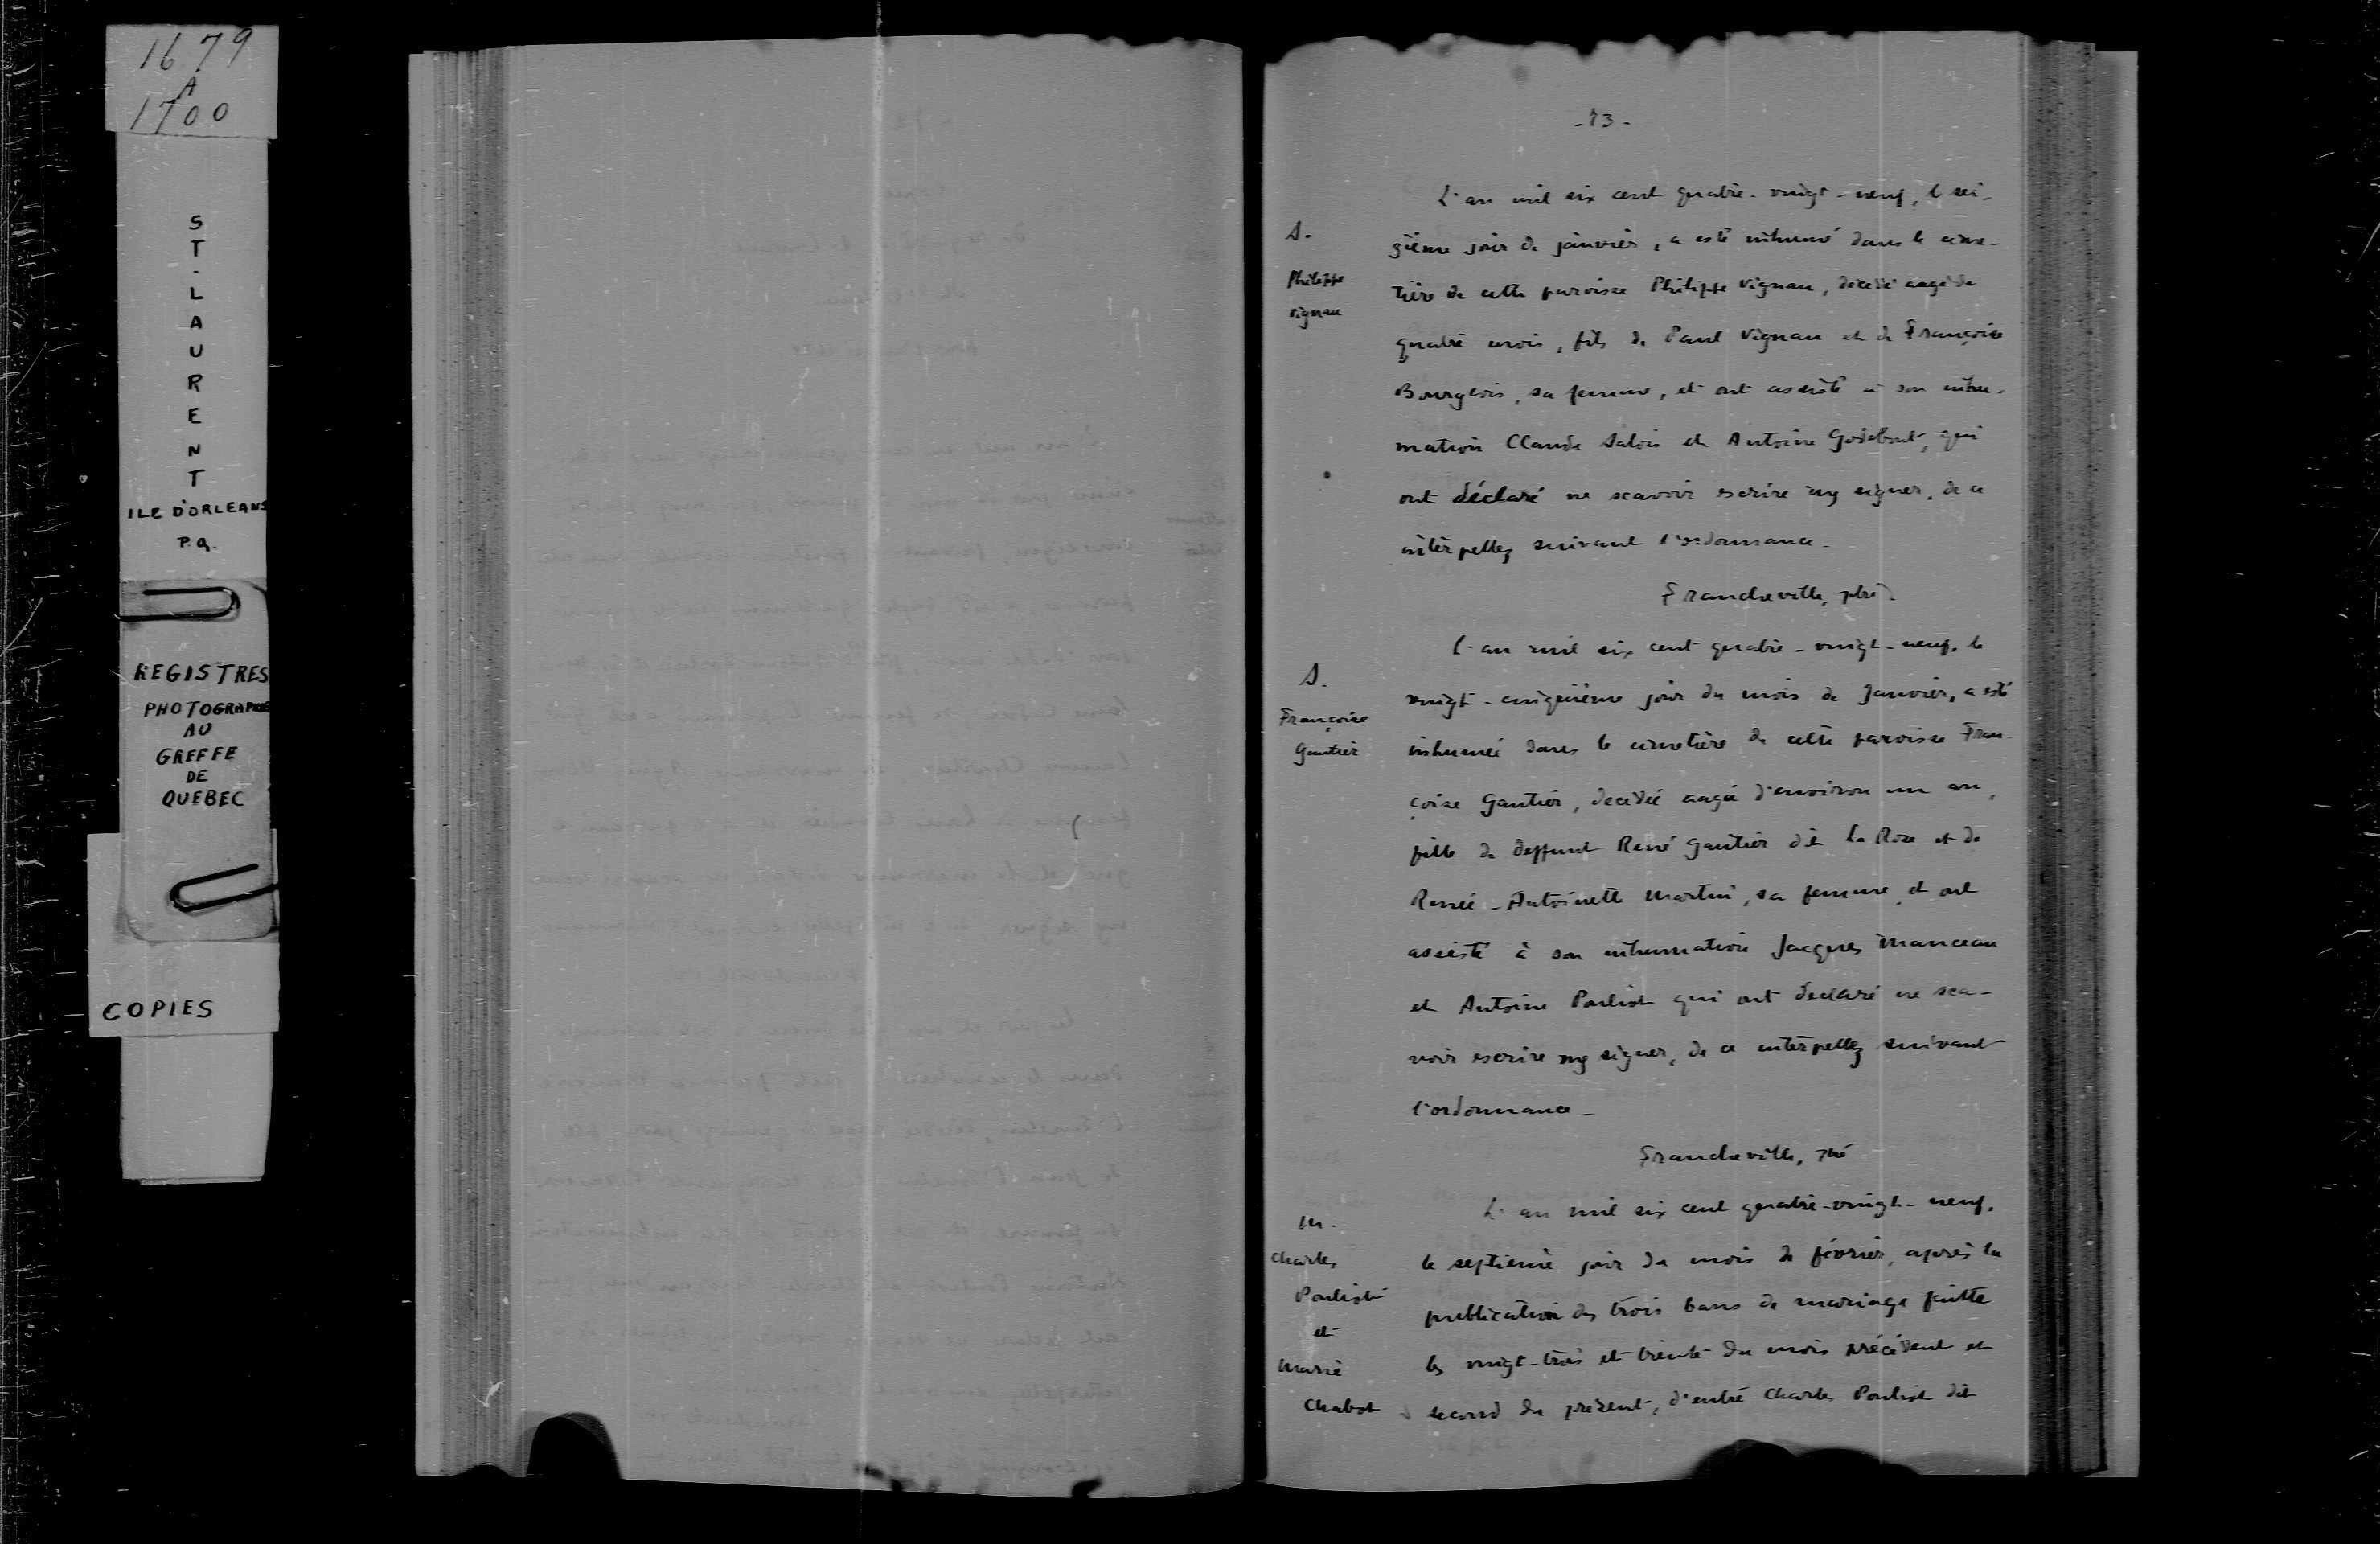 1679
A
1700
ST-LAURENT
ILE D'ORLEANS
P.Q.
REGISTRES
PHOTOGRAPHIES
AU
GREFFE
DE
QUEBEC
COPIES
-73-
L'an mil six cent quatre-vingt-neuf, le sei-
S.
zième jour de janvier, a esté inhumé dans le cime-
Philippe
Vignau
tière de cette paroisse Philippe Vignau, décédé aagé de
quatre mois, fils de Paul Vignau et de Françoise
Bourgeois, sa femme, et ont assisté à son inhu-
mation Claude Salois et Antoine Godebout, qui
ont déclaré ne scavoir escrire ny signer, de ce
interpellez suivant l'ordonnance.
Francheville, ptre
L'an mil six cent quatre-vingt-neuf, le
S.
Françoise
Gautier
vingt-cinquième jour du mois de Janvier, a esté
inhumée dans le cimetière de cette paroisse Fran-
çoise Gautier, decédée aagée d'environ un an,
fille de deffunt René Gautier dit la Rose et de
Renée-Antoinette Martin, sa femme, et ont
assisté à son inhumation Jacques Manceau
et Antoine Pouliot qui ont declaré ne sca-
voir escrire ny signer, de ce interpellez suivant
l'ordonnance.
Francheville, ptre
L'an mil six cent quatre-vingt-neuf,
M.
Charles
Pouliot
et
Marie
Chabot
le septième jour du mois de février, après la
publication des trois bans de mariage faitte
les vingt-trois et trente du mois précédent et
second du présent, d'entre Charles Pouliot dit